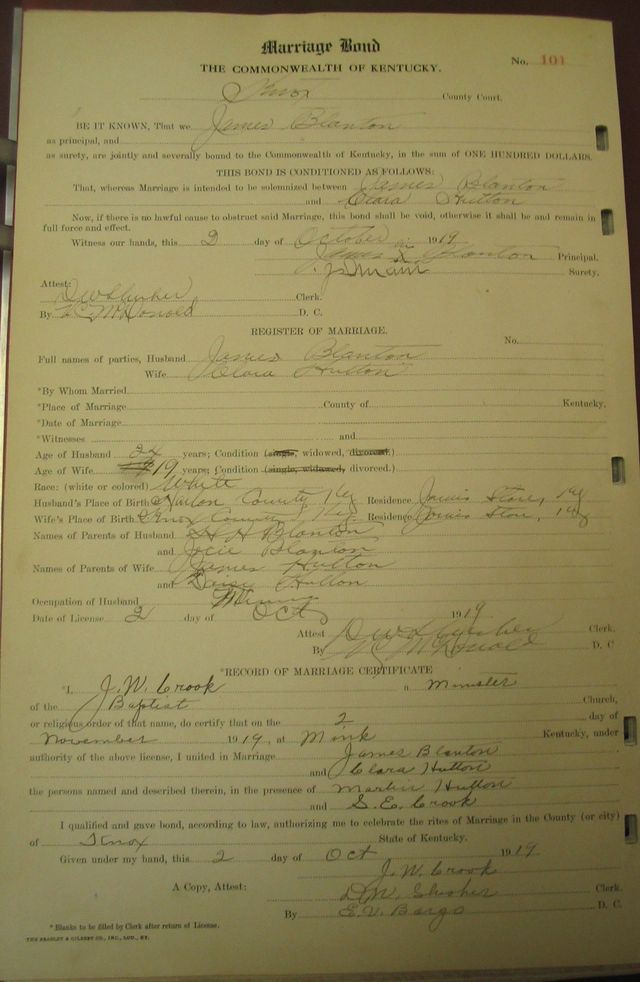 Marriage Bond
THE COMMONWEALTH OF KENTUCKY.
No. 101
Knox County Court.
BE IT KNOWN, That we James Blanton
as principal, and
as surety, are jointly and severally bound to the Commonwealth of Kentucky, in the sum of ONE HUNDRED DOLLARS.
THIS BOND IS CONDITIONED AS FOLLOWS:
That, whereas Marriage is intended to be solemnized between James Blanton
and Clara Hutton
Now, if there is no lawful cause to obstruct said Marriage, this bond shall be void, otherwise it shall be and remain in
full force and effect.
Witness our hands, this 2 day of October 1919
James Blanton Principal.
Surety.
Attest:
Clerk.
By McDonald D. C.
REGISTER OF MARRIAGE.
No.
Full names of parties, Husband James Blanton
Wife Clara Hutton
*By Whom Married
*Place of Marriage County of Kentucky.
*Date of Marriage
*Witnesses and
Age of Husband 24 years; Condition (single, widowed, divorced.)
Age of Wife 19 years; Condition (single, widowed, divorced.)
Race: (white or colored) White
Husband's Place of Birth County Ky Residence Store, Ky
Wife's Place of Birth Knox County Ky. Residence Store, Ky
Names of Parents of Husband H Blanton
and Blanton
Names of Parents of Wife James Hutton
and Hutton
Occupation of Husband
Date of License 2 day of Oct 1919
Attest D W Slusher Clerk.
By McDonald D. C
*RECORD OF MARRIAGE CERTIFICATE
*I, J. W. Crook a Minister
of the Baptist Church,
or religious order of that name, do certify that on the 2 day of
November 1919, at Mink Kentucky, under
authority of the above license, I united in Marriage James Blanton
and Clara Hutton
the persons named and described therein, in the presence of Martin Hutton
and S. E. Crook
I qualified and gave bond, according to law, authorizing me to celebrate the rites of Marriage in the County (or city)
of Knox State of Kentucky.
Given under my hand, this 2 day of Oct 1919.
J. W. Crook
A Copy, Attest: D. W. Slusher Clerk.
By E. V. Bargo D. C.
*Blanks to be filled by Clerk after return of License.
THE BRADLEY & GILBERT CO., INC., LOU., KY.